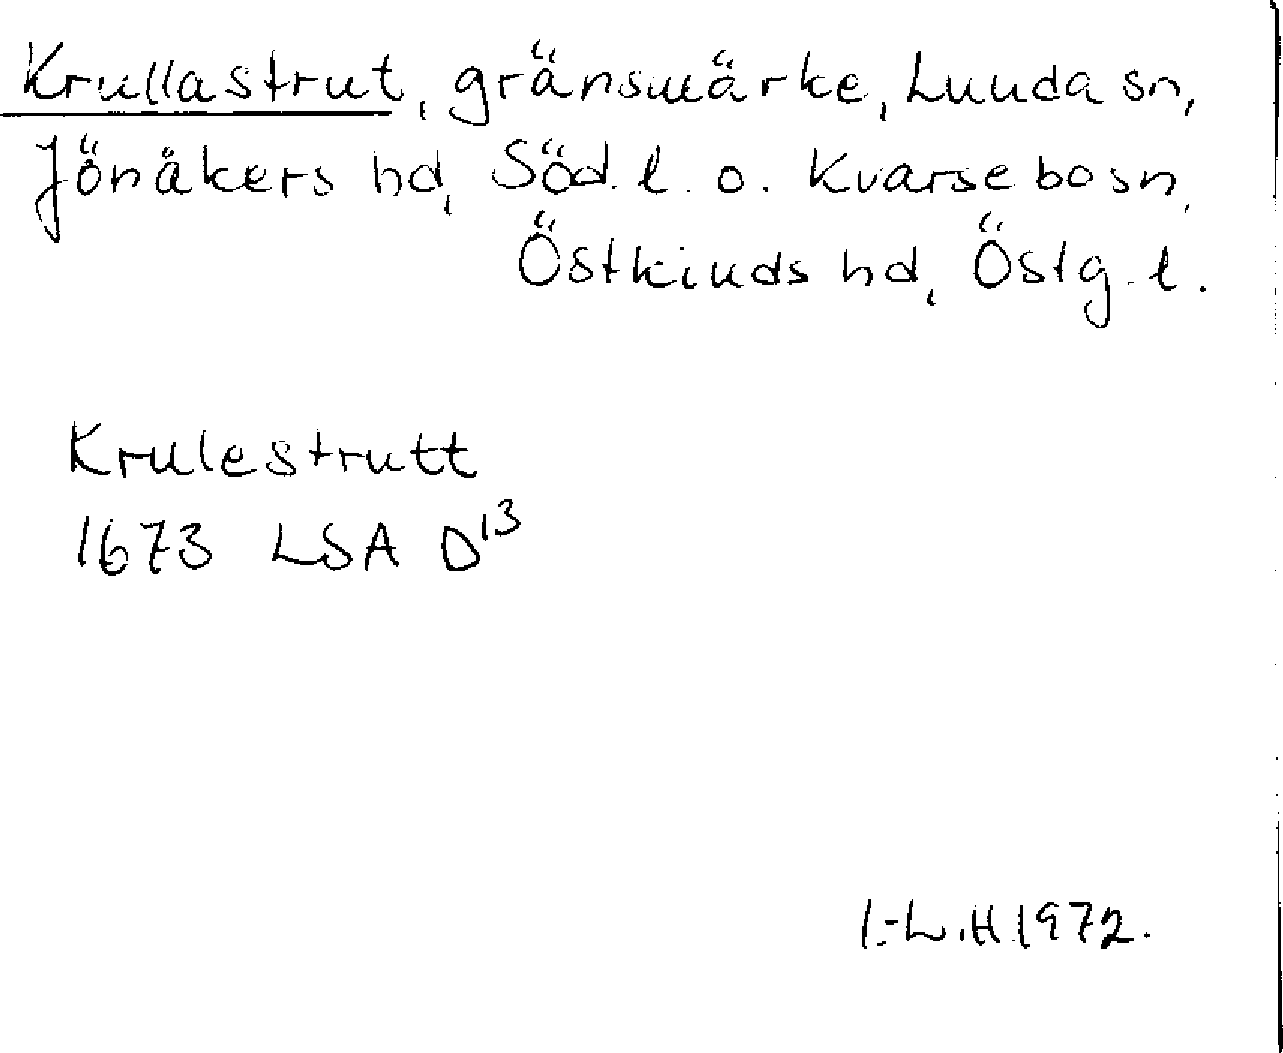 Krullastrut, gränsmärke, Lunda sn,
Jönåkers hd, Söd. l. o. Kvarsebo sn,
Östkinds hd, Östg. l.
Krulestrutt
1673 LSA D13
I.-L. H 1972.